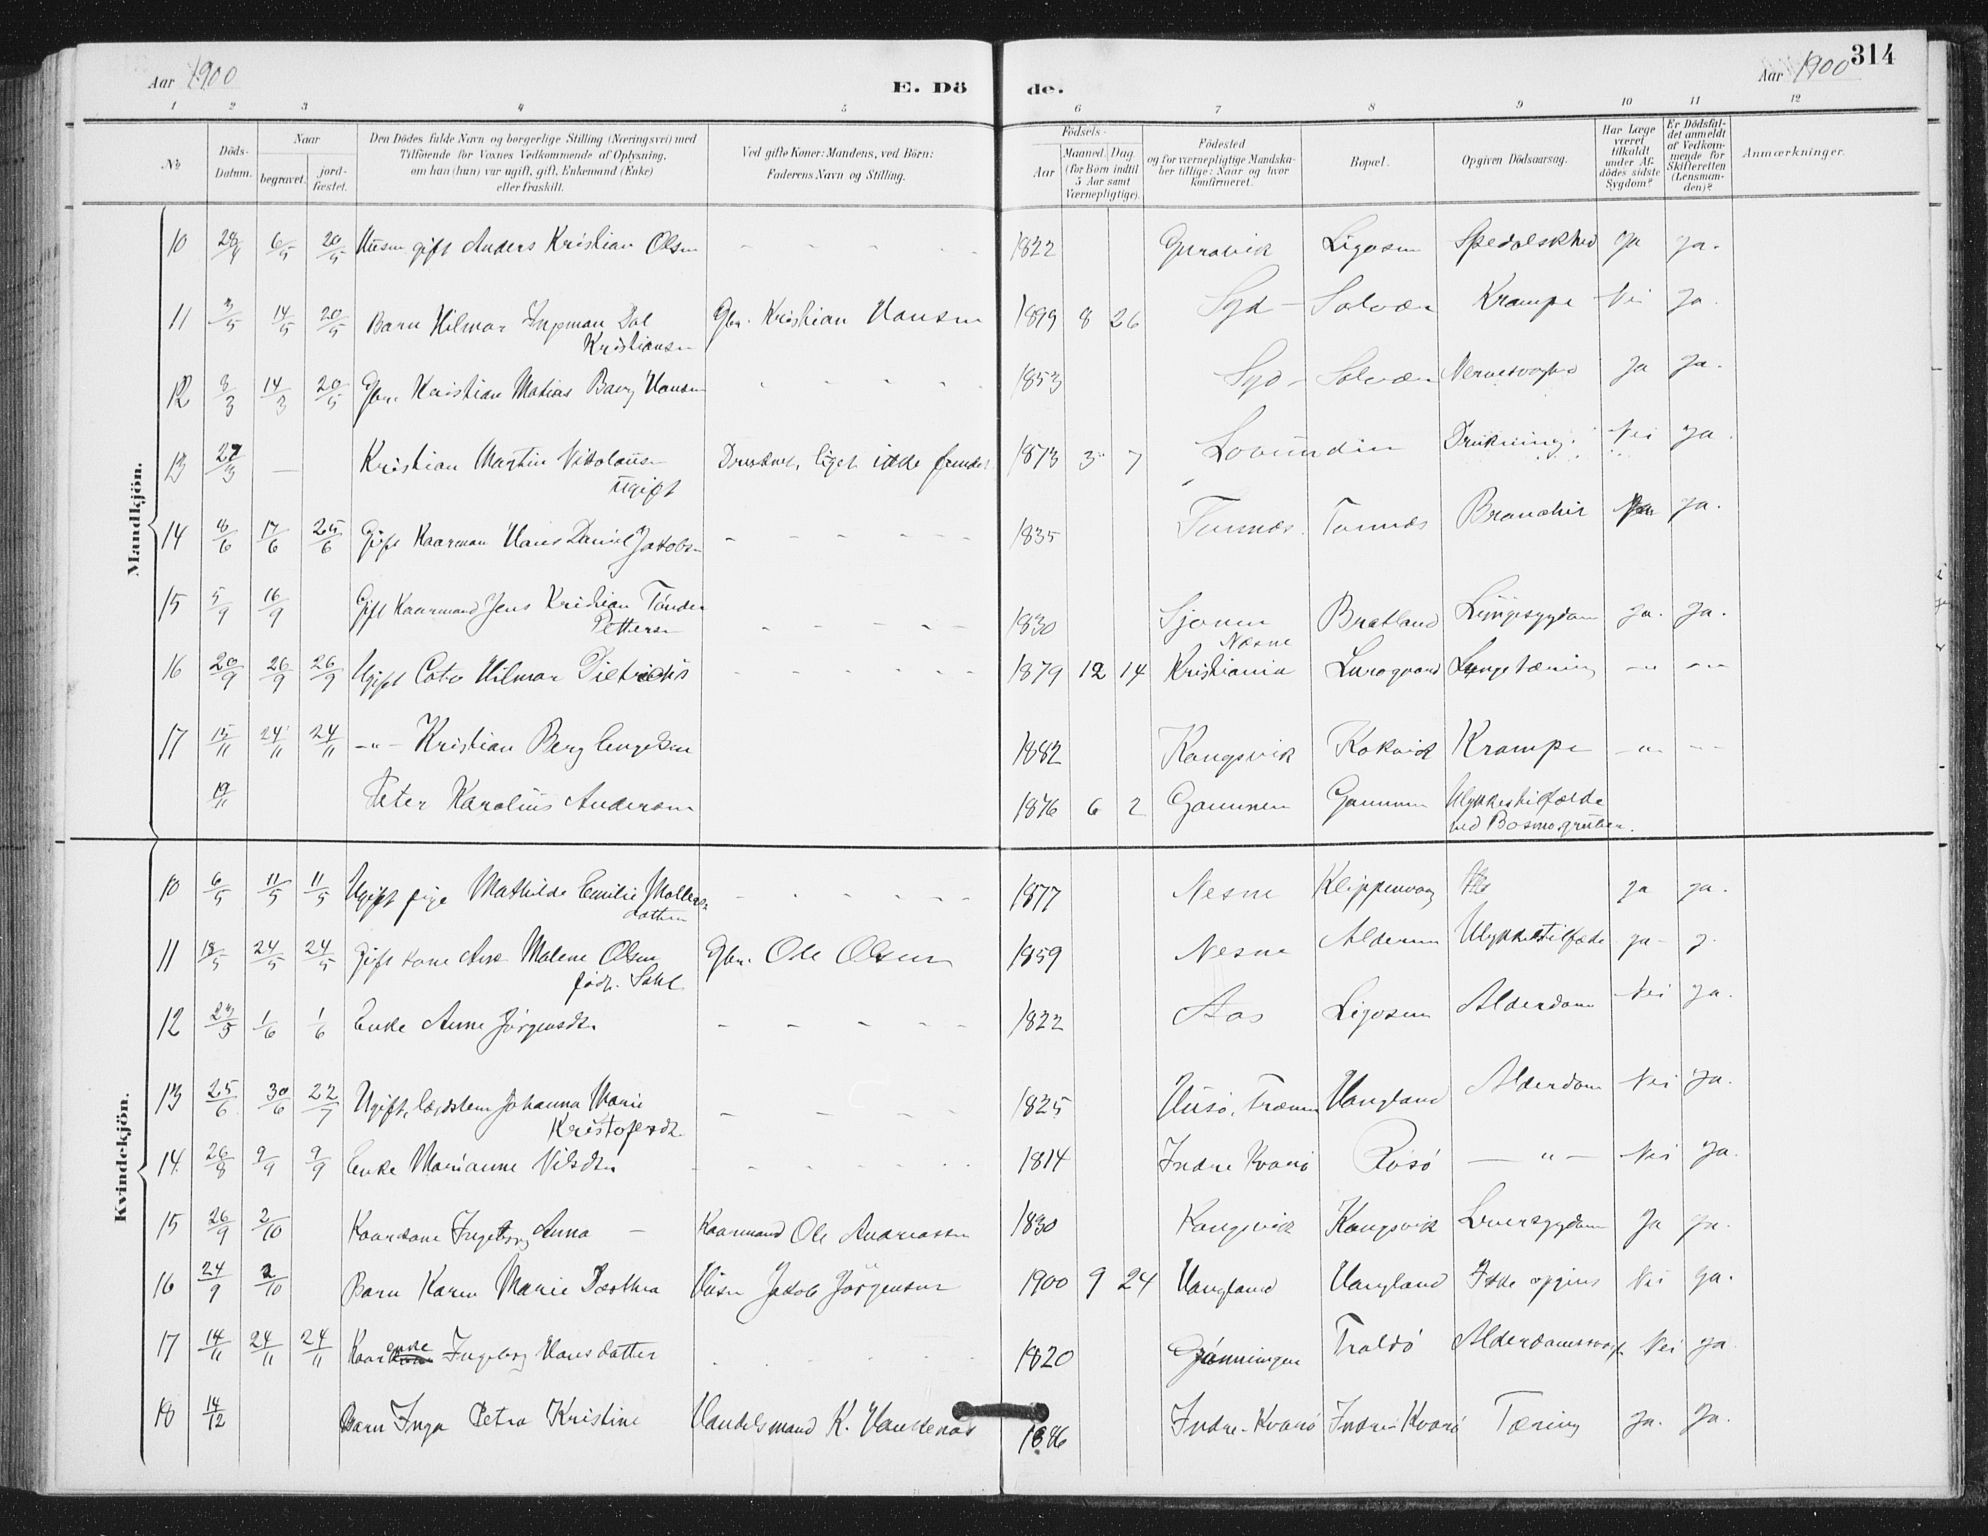 Aar 1900
E. Dö
de.
Aar 1900
314
1 2 3 4 5 6 7 8 9 10 11 12
No
Döds-Datum.
Naar
begravet.
jord-fæstet.
Den Dödes fulde Navn og borgerlige Stilling (Næringsvei) med
Tilföiende for Voxnes Vedkommende af Oplysning,
om han (hun) var ugift, gift, Enkemand (Enke)
eller fraskilt.
Ved gifte Koner: Mandens, ved Börn:
Faderens Navn og Stilling.
Födsels-
Aar
Maaned. Dag
(for Börn indtil
5 Aar samt
Værnepligtige).
Födested
og for værnepligtige Mandska-
ber tillige: Naar og hvor
konfirmeret.
Bopæl.
Opgiven Dödsaarsag.
Har Læge
været
tilkaldt
under Af-
dödes sidste
Sygdom?
Er Dödsfal-
det anmeldt
af Vedkom-
mende for
Skifteretten
(Lensman-
den)?
Anmærkninger.
Mandkjön.
10 28/4 6/5 20/5 Husm gift Anders Kristian Olsen - - - - 1822 Ligosen Spedalskhed Ja Ja.
11 3/5 14/5 20/5 Barn Hilmar Ingman Dal Gbr. Kristian Hansen 1899 8 26 Syd- Solvær Krampe Nei Ja.
Kristiansen
12 3/3 14/3 20/5 Gbr. Kristian Matias Berg Hansen - - - - 1853 Syd- Solvær Ja Ja.
13 27/3 — Kristian Martin Nikolaisen Druknet, liget ikke fundet 1873 3 7 Lovunden Drukning. Nei Ja
ugift
14 8/6 17/6 25/6 Gift Kaarman Hans Daniel Jakobsen - - - - - 1835 Tonnes. Tonnes Ja.
15 5/9 16/9 Gift Kaarmand Jens Kristian Tönder - - - - - 1830 Sjonen Bratland Lungesygdom Ja. Ja.
Pettersen
Nesne
16 20/9 26/9 26/9 Ugift Cato Hilmar Dietrichs - - - - - 1879 12 14 Kristiania Lurogaard Lungetæring -"- -"-
17 15/11 24/11 24/11 -"- Kristian Berg Engelsen 1882 Kangsvik Kokvik Krampe -"- -"-
19/11 Peter Karolius Andersen 1876 6 2 Gammen Gammen Ulykkestilfælde
ved Bosmogruben.
Kvindekjön.
10 6/5 11/5 11/5 Ugift pige Mathilde Emilie - - - - - 1877 Nesne Klippenvaag Ja Ja.
datter
11 18/5 24/5 24/5 Gift kone Ane Malene Olsen Gbr. Ole Olsen 1859 Nesne Alderen Ulykkestilfælde ja- j.
född.
12 23/5 1/6 1/6 Enke Anne Jörgensdtr - - - - - 1822 Aas Ligosen Alderdom Nei Ja.
13 25/6 30/6 22/7 Ugift, Johanna Marie - - - - 1825 Husö, Træna Haugland Alderdom Nei Ja.
Kristofersdtr.
14. 26/8 9/9 9/9 Enke Marianne Nilsdtr - - - - - 1814 Indre Kvarö Rosö — " — Nei Ja.
15 26/9 2/10 Kaarkone Ingeborg Anna — Kaarmand Ole Andreassen 1830 Kangsvik Kangsvik Leversygdom Ja Ja.
16 24/9 2/10 Barn Karen Marie Dorthea Husm Jakob Jörgensen 1900 9 24 Haugland Haugland Ikke opgivet Nei Ja.
17 14/11 24/11 24/11 Kaarenke Ingeborg Hansdatter - - - - 1820 Gjönningen Traldö Alderdomssvagh. Nei Ja.
18 14/12 Barn Inga Petra Kristine Handelsmand K. Hansenas 1886 Indre-Kvarö Indre Kvarö Tæring Ja. Ja.